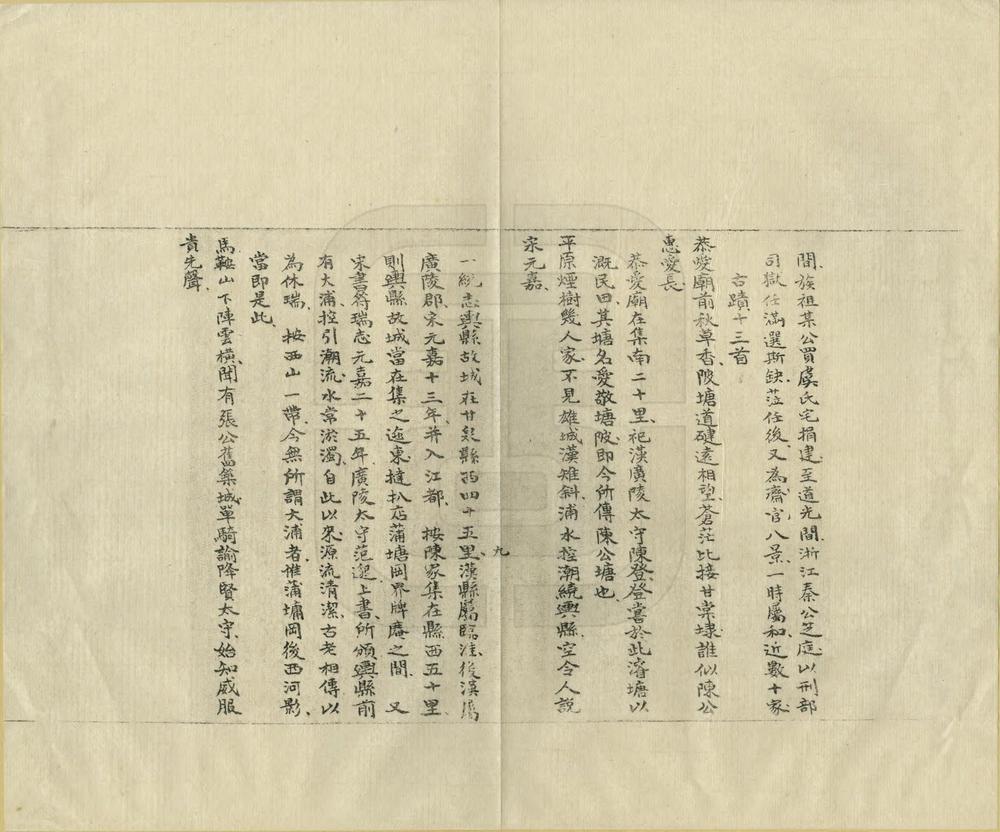 間、族祖某公買虞氏宅捐建、至道光間、浙江秦公芝庭以刑部
司獄任滿選斯缺、蒞任後又為齋官八景、一時屬和、近數十家
古蹟十三首
恭愛廟前秋草香、陂塘道礎遠相望、蒼茫比接甘棠埭、誰似陳公
惠愛長、
恭愛廟在集南二十里、祀漢廣陵太守陳登、登嘗於此濬塘以
溉民田、其塘名愛敬塘陂、即今所傳陳公塘也、
平原煙樹幾人家、不見雄城漢雉斜、浦水控潮繞輿縣、空令人說
宋元嘉、
一統志輿縣故城在甘泉縣西四十五里、漢縣屬臨淮、後漢屬
廣陵郡、宋元嘉十三年并入江都、按陳家集在縣西五十里、
則輿縣故城當在集之迤東撻扒店蒲塘岡界牌庵之間、又
宋書符瑞志元嘉二十五年廣陵太守范邈上書、所領輿縣前
有大浦、控引潮流、水常淤濁、自此以來、源流清潔、古老相傳以
為休瑞、按西山一帶、今無所謂大浦者、惟蒲墉岡後西河影、
當即是此、
馬鞍山下陣雲橫、聞有張公舊築城、單騎諭降賢太守、始知威服
貴先聲、
九